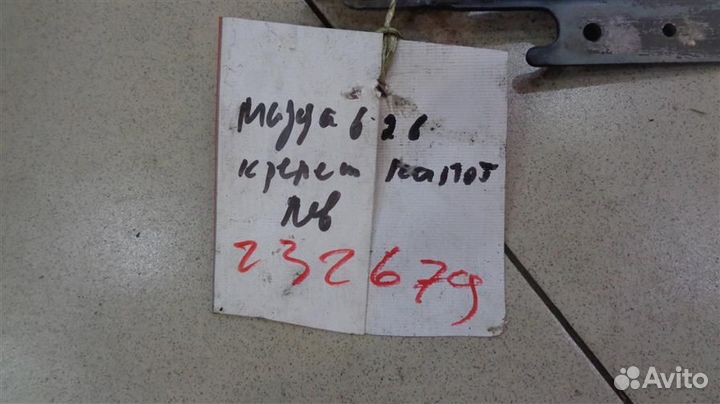 Мазда 626
крепеж капот
лев
232679
Avito